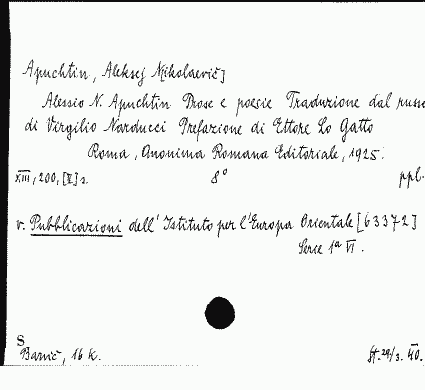 Apuchtin, Aleksej Nikolaevič]
Alessio N. Apuchtin Prose e poesie Traduzione dal russo
di Virgilio Narducci Prefazione di Ettore Lo Gatto
Roma, Anonima Romana Editoriale, 1925.
XIII, 200, [II] s. 8° ppl.
v. Pubblicazioni dell' Istituto per l'Europa Orientale [63372]
Serie 1a VI.
S
Barvič, 16 K. 40.